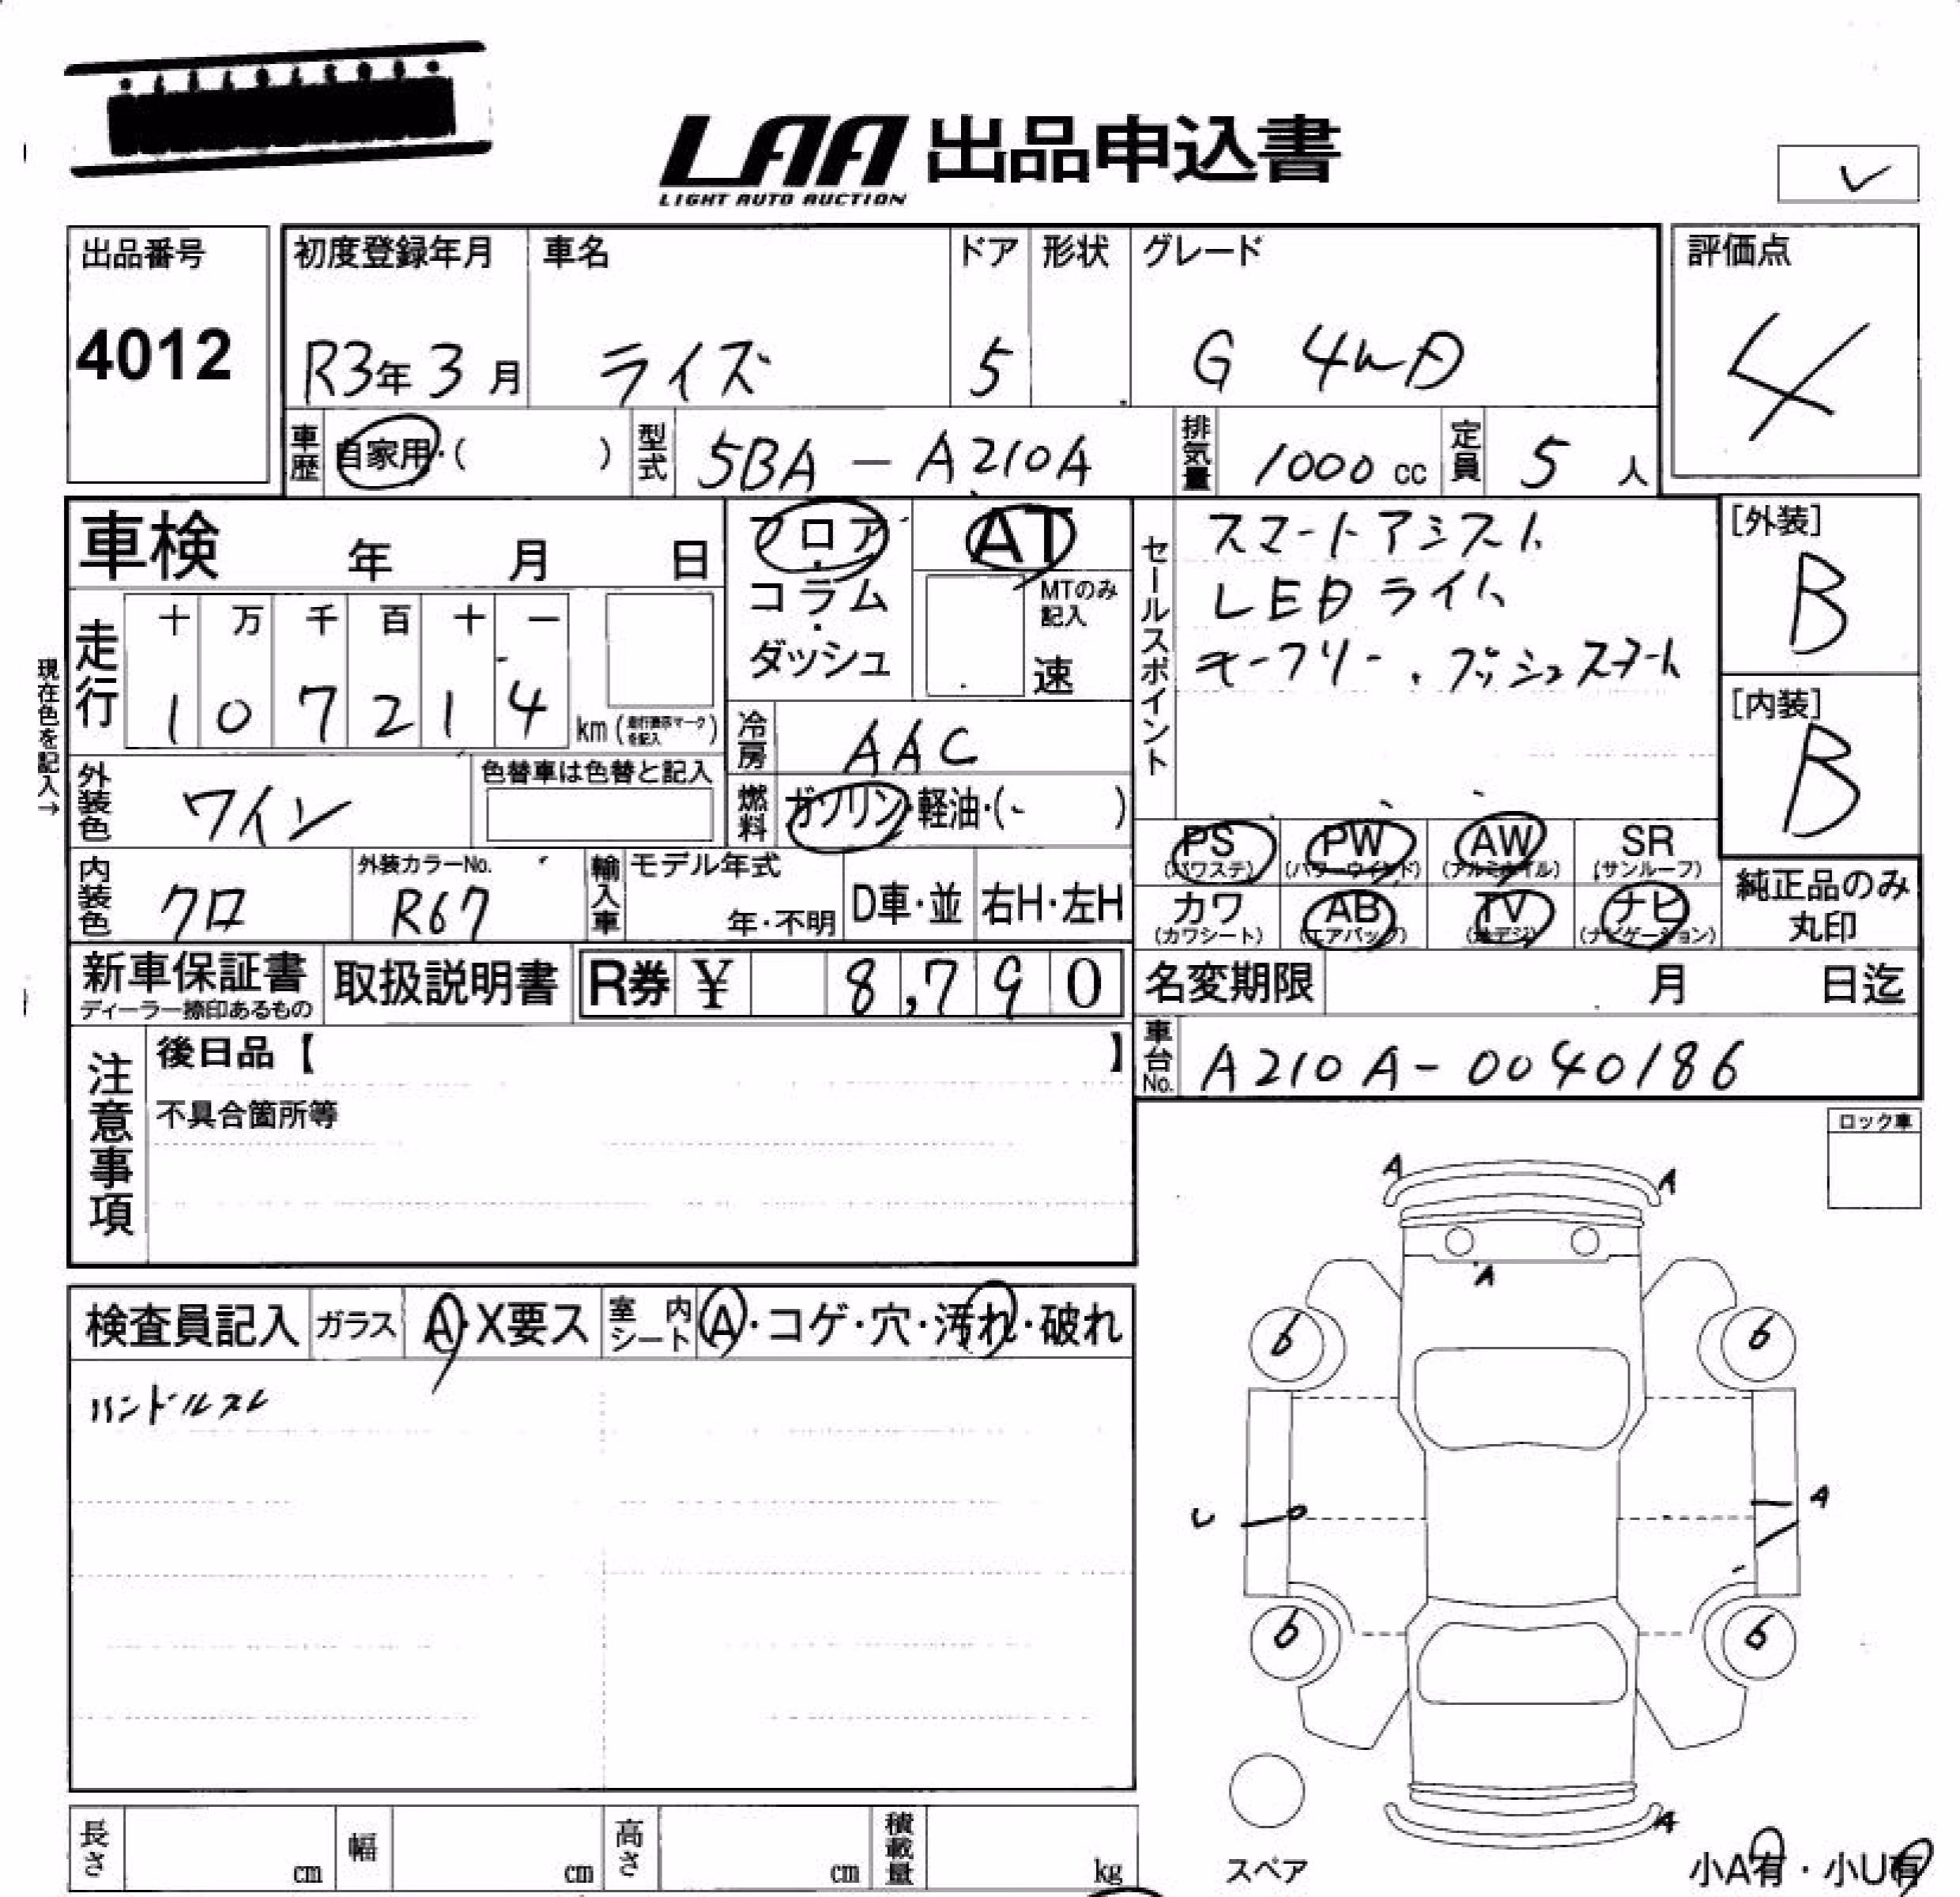 LAA 出品申込書
LIGHT AUTO AUCTION
レ
出品番号
4012
初度登録年月 車名 ドア 形状 グレード
R3年 3月 ライズ 5 G 4WD
評価点
4
車歴 自家用・( ) 型式 5BA - A210A 排気量 1000 cc 定員 5 人
車検 年 月 日
フロア・コラム・ダッシュ
AT
MTのみ記入
速
セールスポイント
スマートアシスト
LEDライト
キーフリー . プッシュスタート
[外装]
B
[内装]
B
現在色を記入→
走行 十 万 千 百 十 一
1 0 7 2 1 4 km (走行表示マークを記入)
冷房 AAC
外装色 ワイン 色替車は色替と記入
燃料 ガソリン・軽油・( )
PS PW AW SR
(パワステ) (パワーウインド) (アルミホイル) (サンルーフ)
カワ AB TV ナビ
(カワシート) (エアバック) (地デジ) (ナビゲーション)
純正品のみ
丸印
内装色 クロ 外装カラーNo. R67
輸入車 モデル年式 年・不明 D車・並 右H・左H
新車保証書
ディーラー捺印あるもの
取扱説明書 R券 ¥ 8,790
名変期限 月 日迄
車台No. A210A-0040186
注意事項
後日品【 】
不具合箇所等
ロック車
検査員記入 ガラス A・X要ス 室内シート A・コゲ・穴・汚れ・破れ
ハンドルスレ
A A
A
6 6
A
6 6
A
スペア
小A有・小U有
長さ cm 幅 cm 高さ cm 積載量 kg